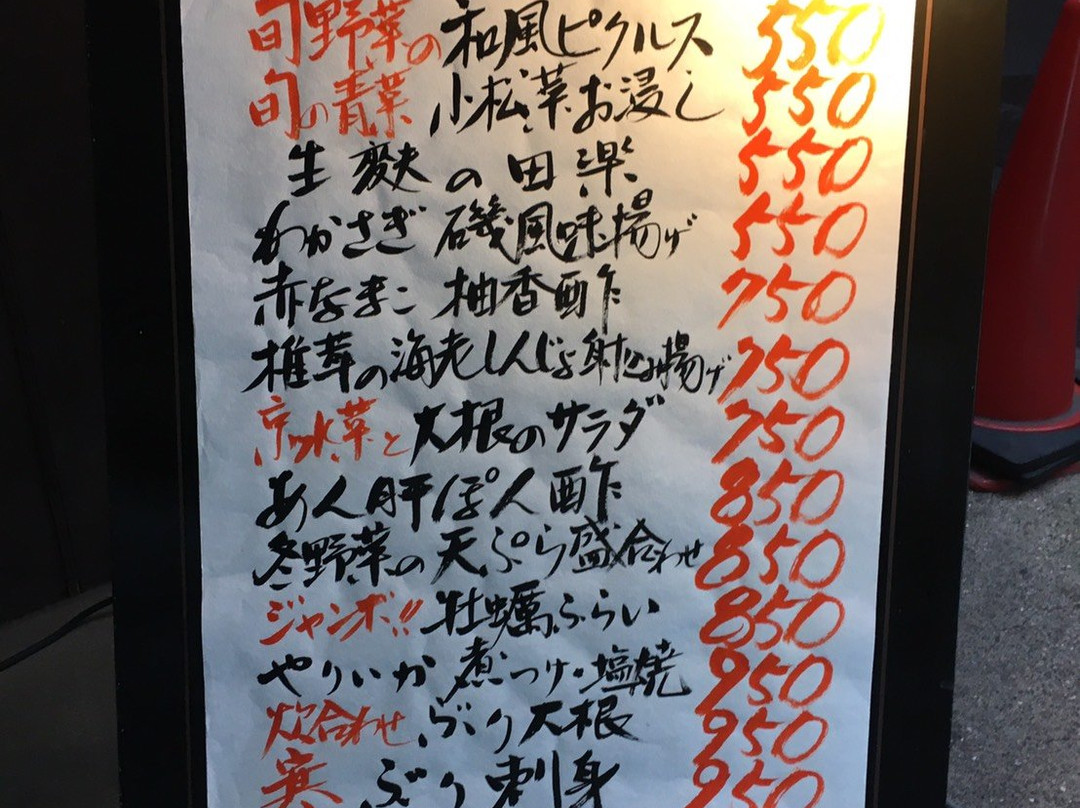 旬野菜の和風ピクルス 550
旬の青菜 小松菜お浸し 550
生麩の田楽 550
わかさぎ 磯風味揚げ 550
赤なまこ 柚香酢 750
椎茸の海老しんじょ射込み揚げ 750
京水菜と大根のサラダ 750
あん肝ぽん酢 850
冬野菜の天ぷら盛合わせ 850
ジャンボ!! 牡蠣ふらい 850
やりいか 煮つけ・塩焼 950
炊合わせ ぶり大根 950
寒ぶり刺身 950